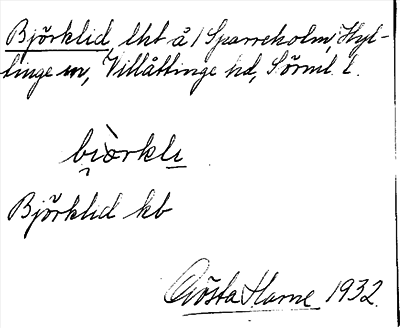 Björklid, lht å 1 Sparreholm, Hyl-
tinge sn, Villåttinge hd, Sörml. l.
biòrkli
Björklid kb
Gösta Harne 1932.